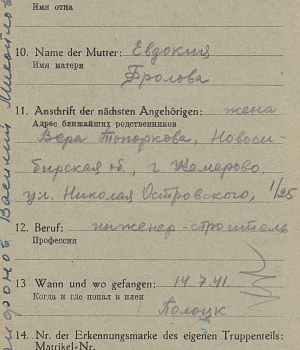 Имя отца
10. Name der Mutter: Евдокия
Имя матери
Фролова
11. Anschrift der nächsten Angehörigen: жена
Адрес ближайших родственников
Вера Топоркова, Новоси-
бирская об., г Кемерово,
ул. Николая Островского, 1/25
12. Beruf: инженер-строитель
Профессия
13 Wann und wo gefangen: 14.7.41.
Когда и где попал в плен
Полоцк
14. Nr. der Erkennungsmarke des eigenen Truppenteils:
Matrikel-Nr.
Василий Михайлов